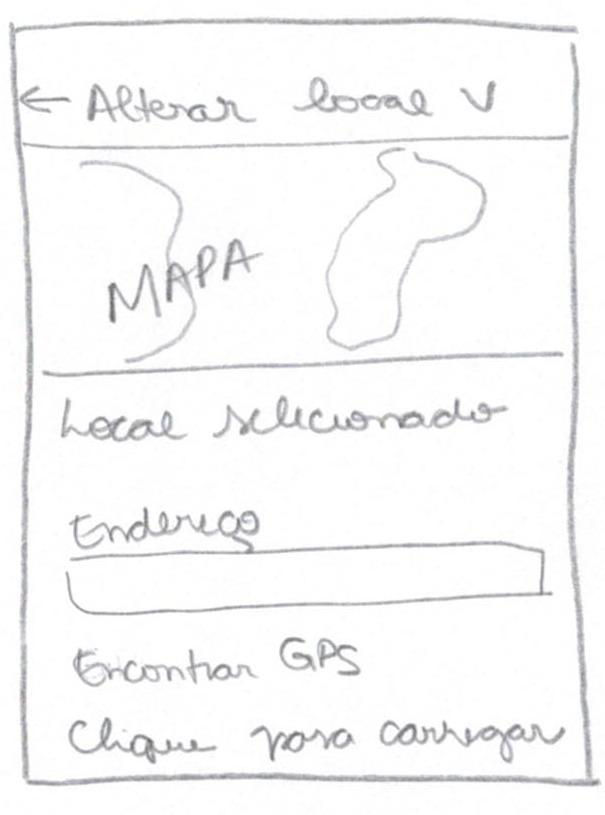 ← Alterar local V
MAPA
Local selecionado
Endereço
Encontrar GPS
Clique para carregar